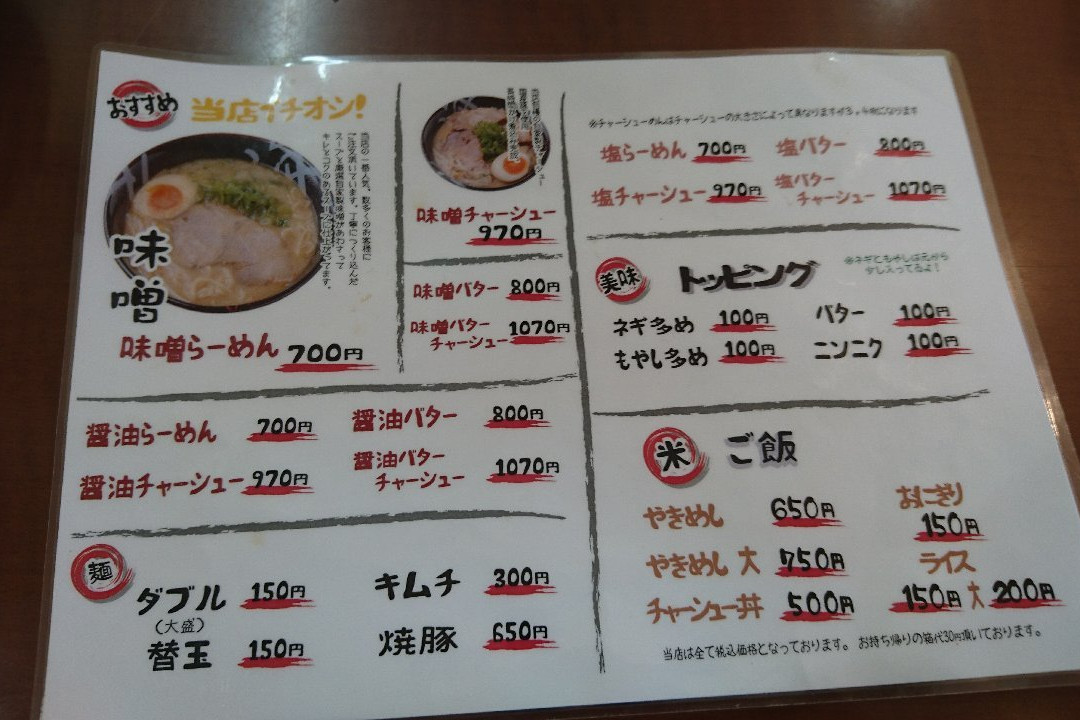 おすすめ 当店イチオシ!
当店の一番人気、数多くのお客様に
ご注文頂いています。丁寧につくり込んだ
スープと厳選自家製味噌があわさって
味噌
味噌らーめん 700円
味噌チャーシュー
970円
味噌バター 800円
味噌バター
チャーシュー 1070円
醤油らーめん 700円
醤油バター 800円
醤油チャーシュー 970円
醤油バター
チャーシュー 1070円
麺
ダブル 150円
(大盛)
キムチ 300円
替玉 150円
焼豚 650円
※チャーシューめんはチャーシューの大きさによって異なりますが3,4枚になります
塩らーめん 700円
塩バター 800円
塩チャーシュー 970円
塩バター
チャーシュー 1070円
美味 トッピング
※ネギともやしは元から
少し入ってるよ!
ネギ多め 100円
バター 100円
もやし多め 100円
ニンニク 100円
米 ご飯
やきめし 650円
おにぎり
150円
やきめし 大 750円
ライス
150円 大 200円
チャーシュー丼 500円
当店は全て税込価格となっております。 お持ち帰りの箱代30円頂いております。